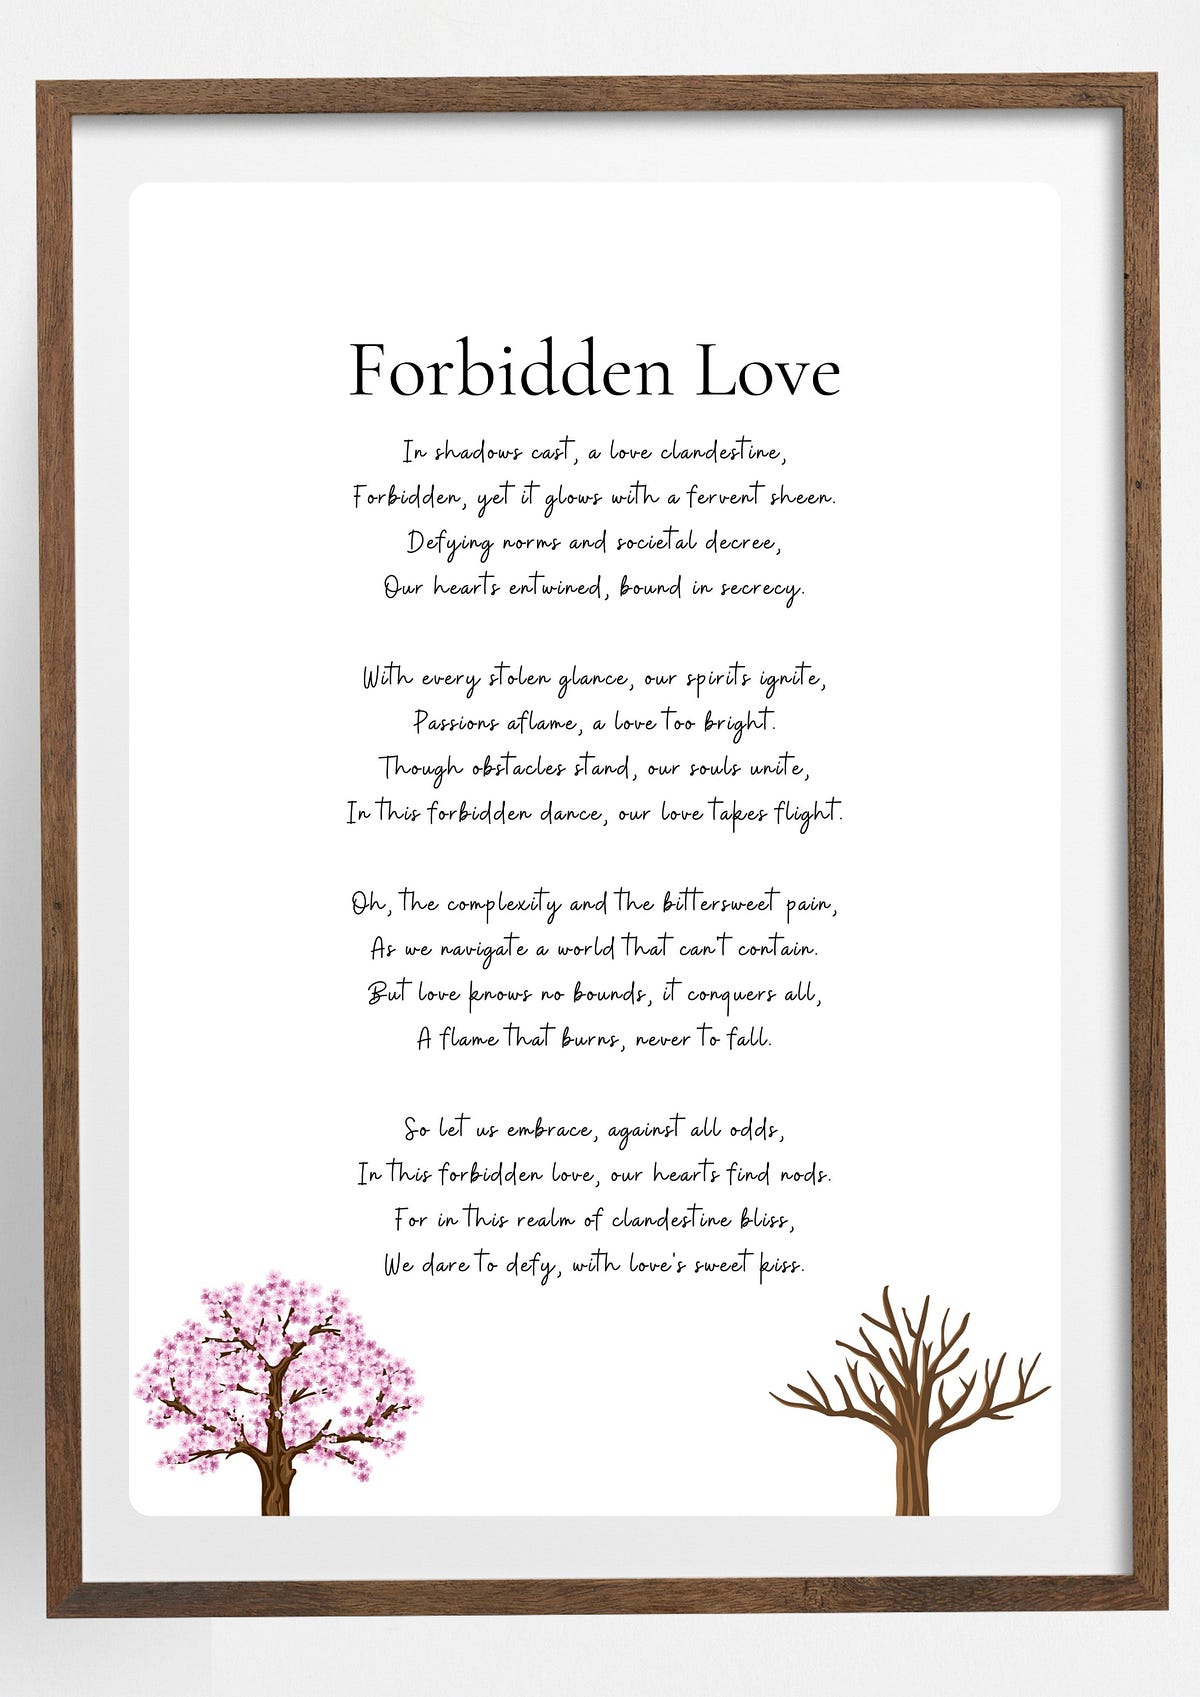 Forbidden Love
In shadows cast, a love clandestine,
Forbidden, yet it glows with a fervent sheen.
Defying norms and societal decree,
Our hearts entwined, bound in secrecy.
With every stolen glance, our spirits ignite,
Passions aflame, a love too bright.
Though obstacles stand, our souls unite,
In this forbidden dance, our love takes flight.
Oh, the complexity and the bittersweet pain,
As we navigate a world that can't contain.
But love knows no bounds, it conquers all,
A flame that burns, never to fall.
So let us embrace, against all odds,
In this forbidden love, our hearts find nods.
For in this realm of clandestine bliss,
We dare to defy, with love's sweet kiss.